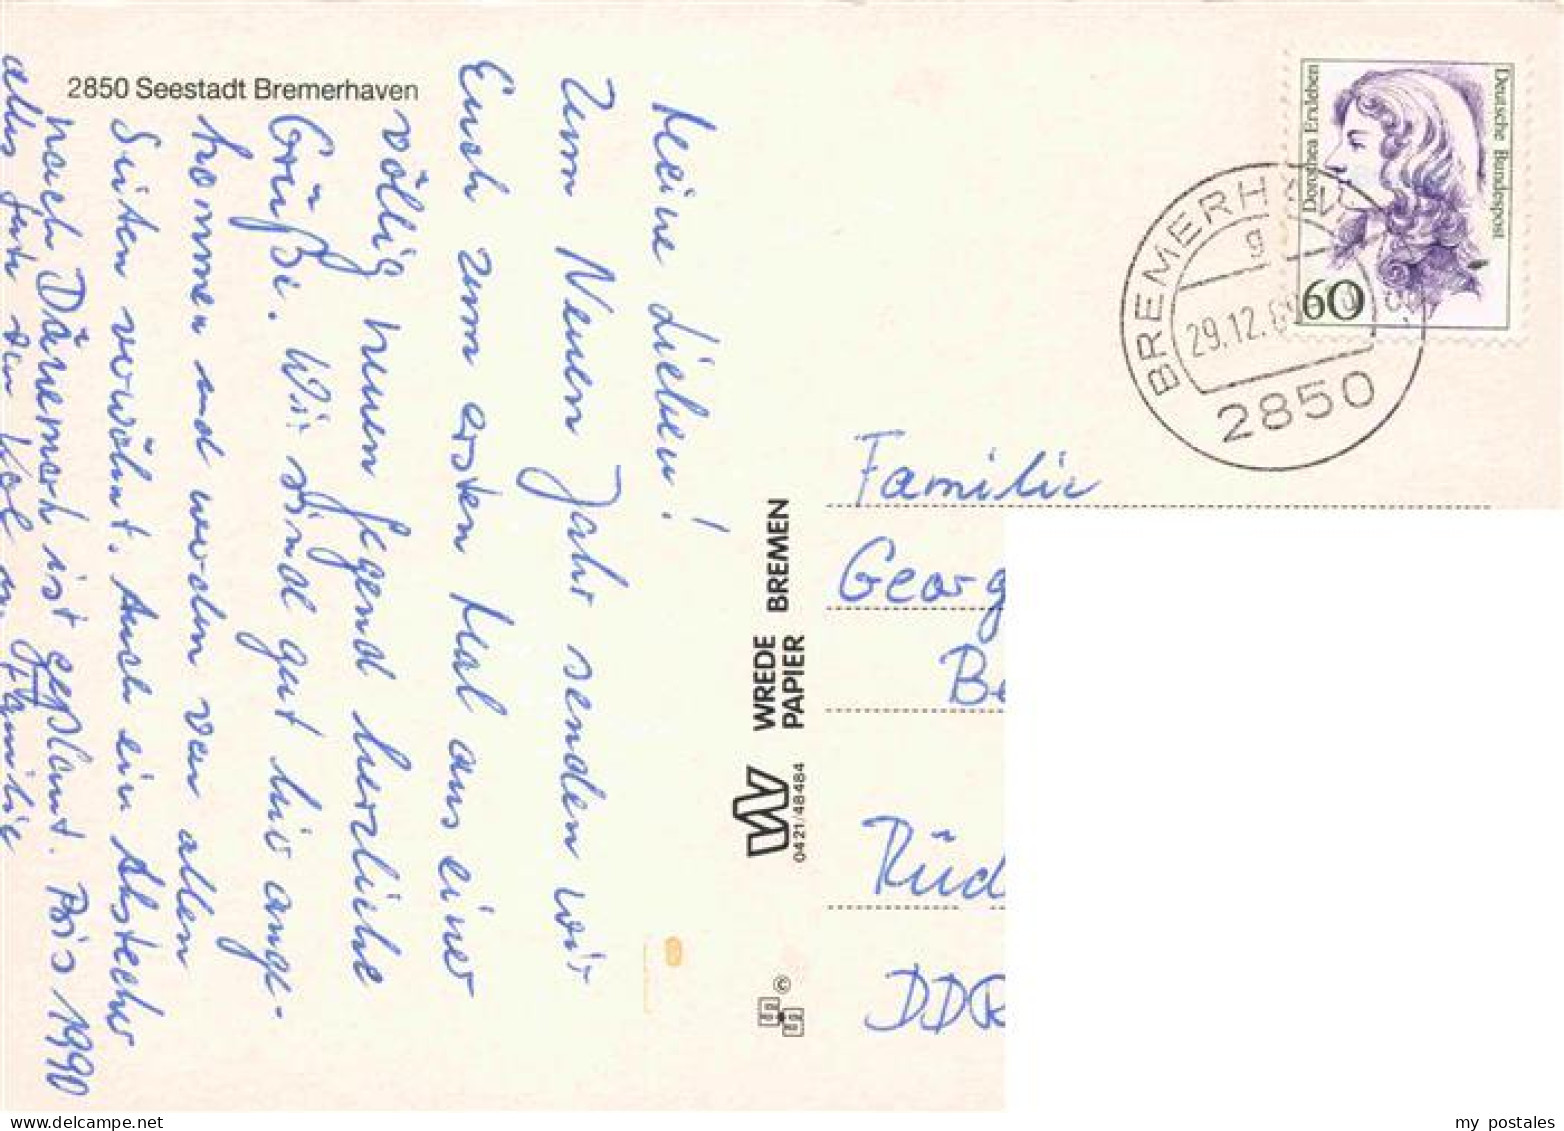 2850 Seestadt Bremerhaven
Meine Lieben!
Zum Neuen Jahr senden wir
Euch zum ersten Mal aus einer
völlig neuen Gegend herzliche
Grüße. Wir sind gut hier ange-
kommen und werden von allen
Seiten verwöhnt. Auch ein Abstecher
nach Dänemark ist geplant. Bis 1990
alles Gute den
Familie
WREDE
PAPIER BREMEN
0421/48484
©
Deutsche Bundespost
Dorothea Erxleben
60
BREMERHAV
g
29.12.89
2850
Familie
Georg
Be
Rüd
DDR
my postales
delcampe.net